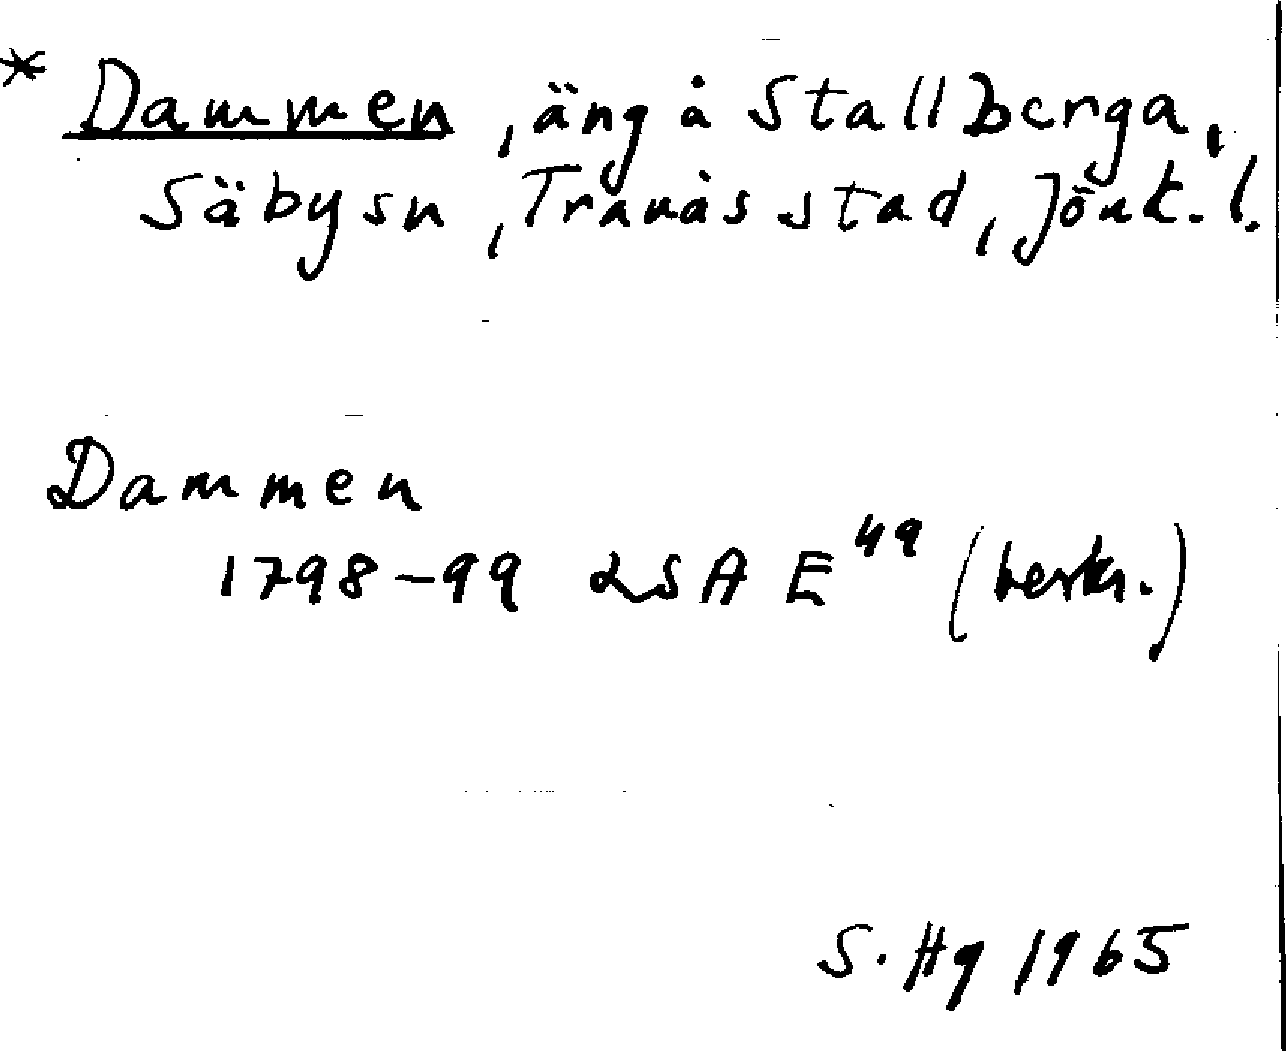 * Dammen, äng å Stallberga,
Säbysn, Tranås stad, Jönk. l.
Dammen
1798-99 LSA E 49 (beskr.)
S. Hg 1965